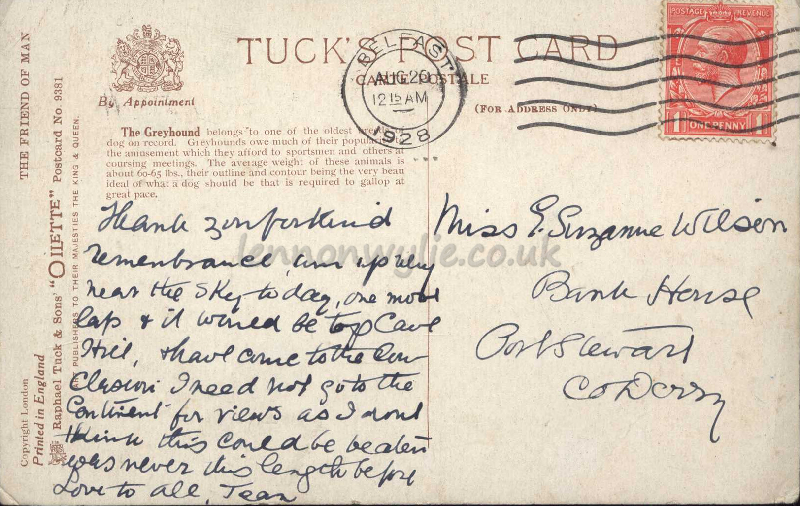 TUCK'S POST CARD
CARTE POSTALE
(FOR ADDRESS ONLY)
By Appointment
BELFAST
AUG 20
12 15 AM
1928
POSTAGE REVENUE
1 ONE PENNY 1
The Greyhound belongs to one of the oldest breeds of
dog on record. Greyhounds owe much of their popularity to
the amusement which they afford to sportsmen and others at
coursing meetings. The average weight of these animals is
about 60-65 lbs., their outline and contour being the very beau
ideal of what a dog should be that is required to gallop at
great pace.
THE FRIEND OF MAN
Raphael Tuck & Sons' "OILETTE" Postcard No. 9381
ART PUBLISHERS TO THEIR MAJESTIES THE KING & QUEEN.
Copyright London
Printed in England
Thank you for kind
remembrance, am up very
near the sky to day, one more
lap & it would be top Cave
Hill, & have come to the con-
clusion I need not go to the
Continent for views as I dont
think this could be beaten
was never this length before
Love to all, Jean
Miss E. Suzanne Wilson
Bank House
Portstewart
Co Derry
lennonwylie.co.uk